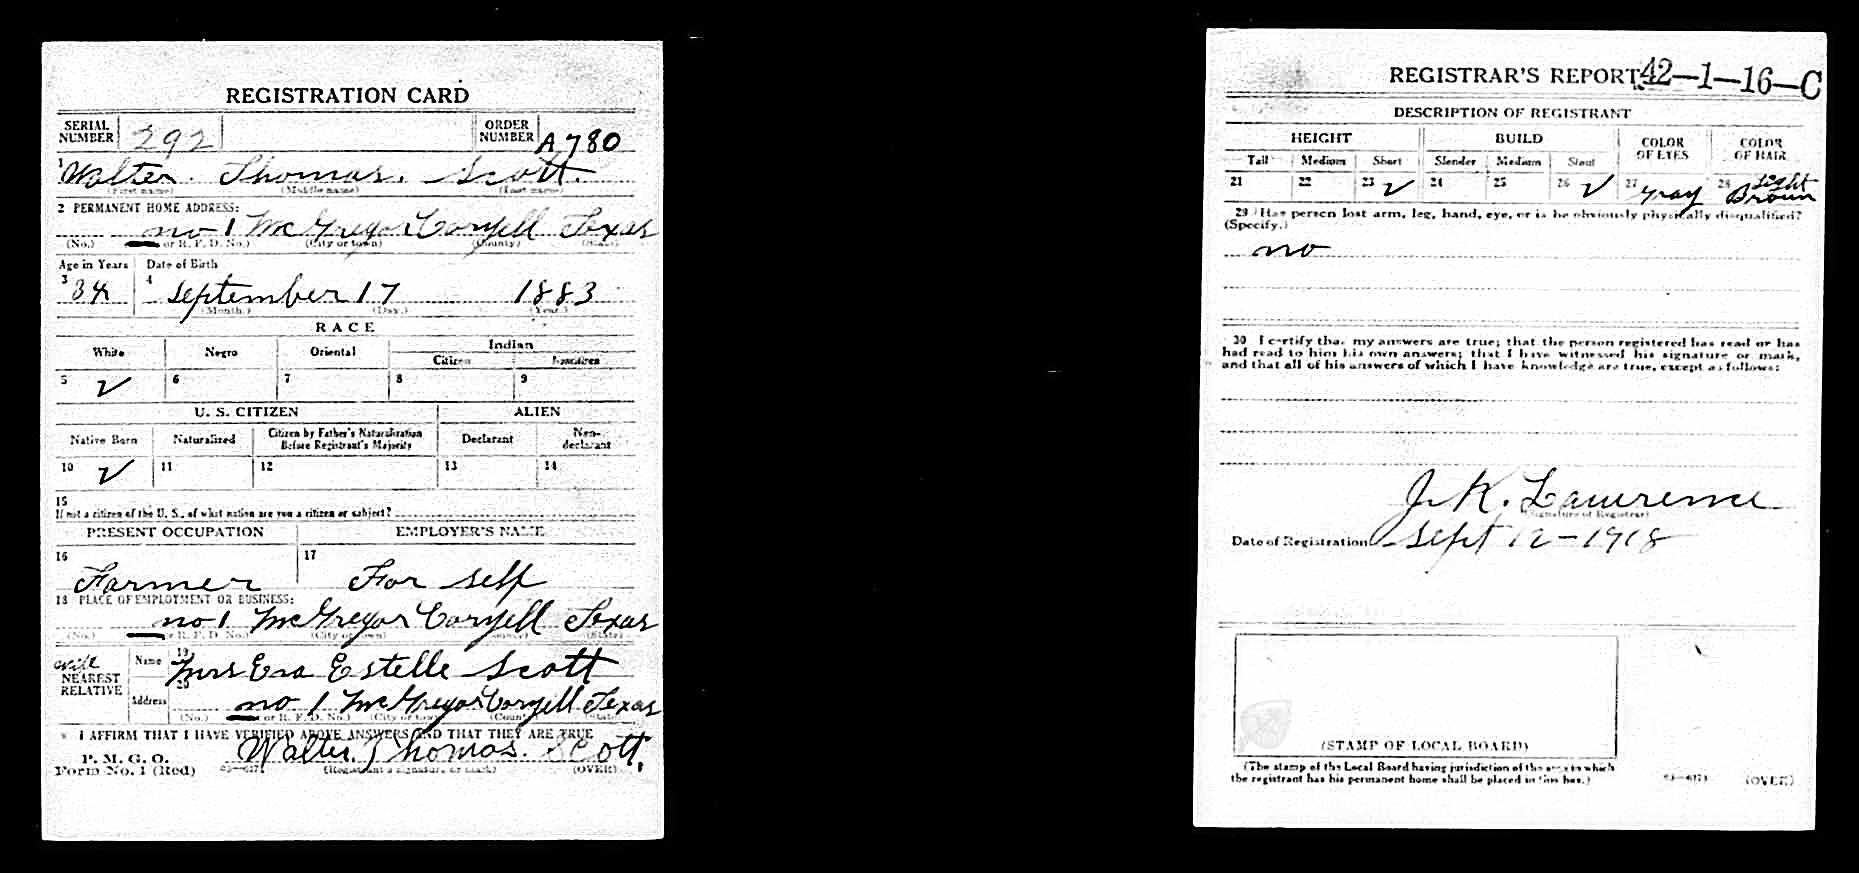 REGISTRATION CARD
SERIAL NUMBER 292 ORDER NUMBER A780
1 Walter. Thomas. Scott.
(First name) (Middle name) (Last name)
2 PERMANENT HOME ADDRESS:
no 1 McGregor Coryell Texas
(No.) or R. F. D. No.) (City or town) (County) (State)
Age in Years Date of Birth
3 34 4 September 17 1883
(Month.) (Day.) (Year.)
RACE
White Negro Oriental Indian
Citizen Noncitizen
5 ✓ 6 7 8 9
U. S. CITIZEN ALIEN
Native Born Naturalized Citizen by Father's Naturalization Before Registrant's Majority Declarant Non-declarant
10 ✓ 11 12 13 14
15
If not a citizen of the U. S., of what nation are you a citizen or subject?
PRESENT OCCUPATION EMPLOYER'S NAME
16 17
Farmer For self
18 PLACE OF EMPLOYMENT OR BUSINESS:
no 1 McGregor Coryell Texas
(No.) or R. F. D. No.) (City or town) (County) (State)
wife
NEAREST RELATIVE Name 19 Mrs Eva Estelle Scott
Address 20 no 1 McGregor Coryell Texas
(No.) or R. F. D. No.) (City or town) (County) (State)
I AFFIRM THAT I HAVE VERIFIED ABOVE ANSWERS AND THAT THEY ARE TRUE
P. M. G. O.
Form No. 1 (Red) 03—6171 Walter Thomas. Scott.
(Registrant's signature or mark) (OVER)
REGISTRAR'S REPORT 42—1—16—C
DESCRIPTION OF REGISTRANT
HEIGHT BUILD COLOR OF EYES COLOR OF HAIR
Tall Medium Short Slender Medium Stout
21 22 23 ✓ 24 25 26 ✓ 27 Gray 28 Light Brown
29 Has person lost arm, leg, hand, eye, or is he obviously physically disqualified?
(Specify.)
no
30 I certify that my answers are true; that the person registered has read or has
had read to him his own answers; that I have witnessed his signature or mark,
and that all of his answers of which I have knowledge are true, except as follows:
J. K. Lawrence
(Signature of Registrar)
Date of Registration Sept 12-1918
(STAMP OF LOCAL BOARD)
(The stamp of the Local Board having jurisdiction of the area in which
the registrant has his permanent home shall be placed in this box.)
03—6171 (OVER)